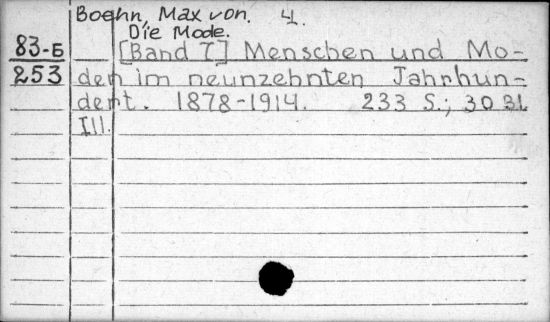 Boehn, Max von. 4.
Die Mode.
83-Б
253
[Band 7] Menschen und Mo-
den im neunzehnten Jahrhun-
dert. 1878-1914. 233 S.; 30 31
Ill.